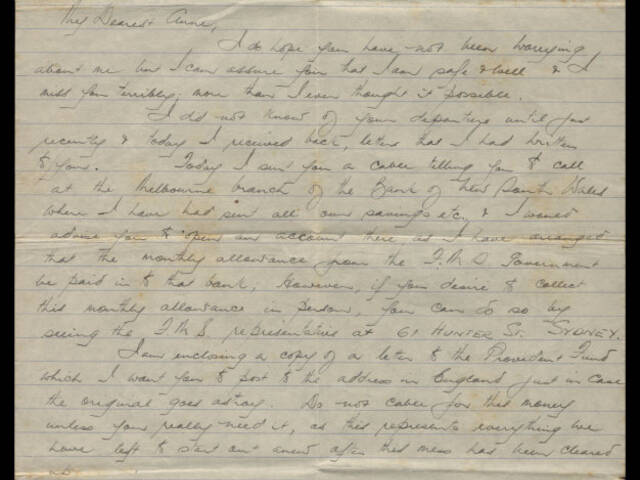 My Dearest Anne,
I do hope you have not been worrying
about me but I can assure you that I am safe & well & I
miss you terribly; more than I ever thought it possible.
I did not know of your departure until just
recently & today I received back, letters that I had written
to you. Today I sent you a cable telling you to call
at the Melbourne branch of the Bank of New South Wales
where I have had sent all our savings etc, & I would
advise you to open an account there as I have arranged
that the monthly allowance from the F.M.S. Government
be paid in to that bank, However, if you desire to collect
this monthly allowance in person, you can do so by
seeing the F.M.S representative at 61 HUNTER ST. SYDNEY.
I am enclosing a copy of a letter to the Provident Fund
which I want you to post to the address in England just in case
the original goes astray. Do not cable for this money
unless you really need it, as this represents everything we
have left to start out anew after this mess has been cleared
up.